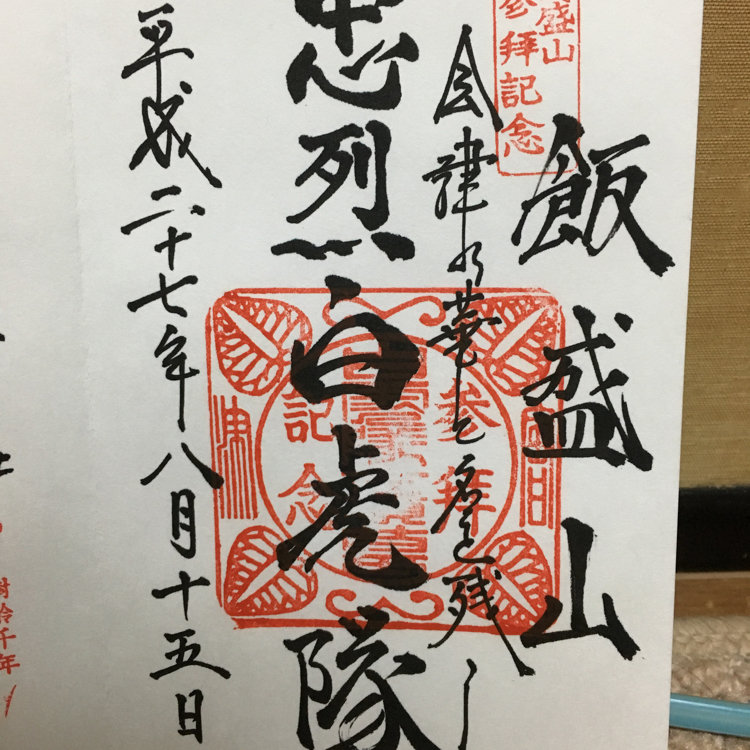 盛山
参拝記念
飯盛山
会津の華と名を残し
忠烈白虎隊
参拝
記念
平成二十七年八月十五日
樹齢千年